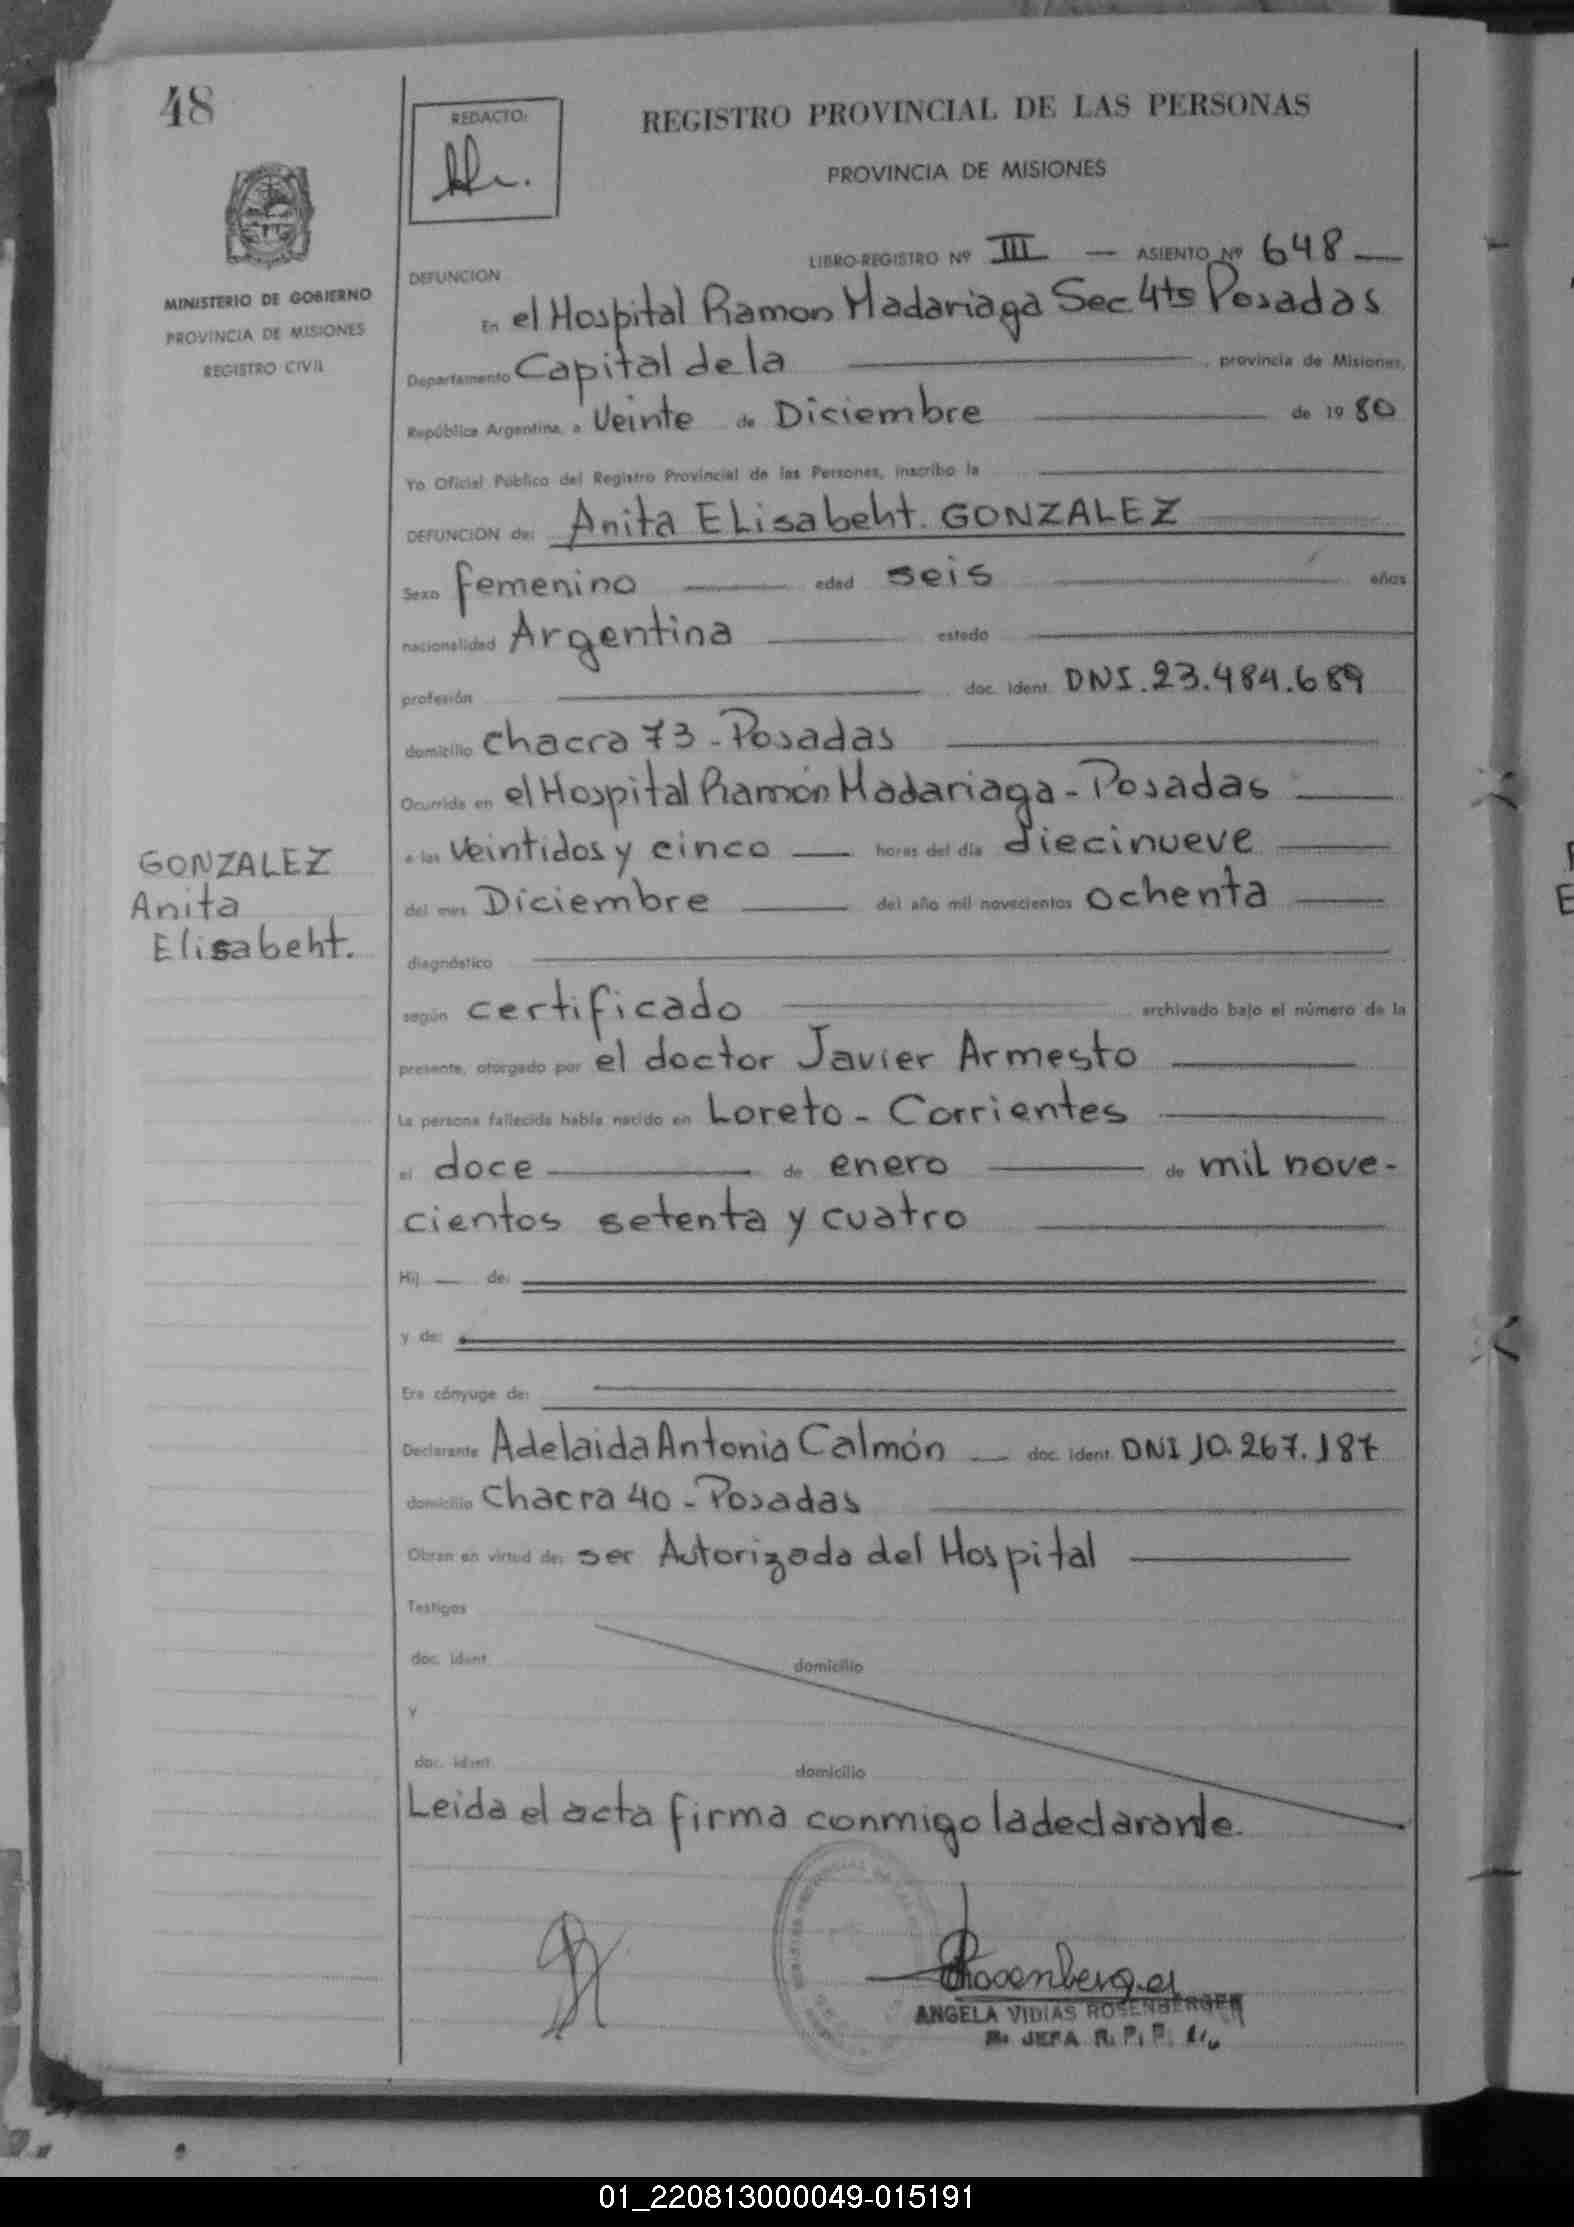 48
REDACTO:
REGISTRO PROVINCIAL DE LAS PERSONAS
PROVINCIA DE MISIONES
MINISTERIO DE GOBIERNO
PROVINCIA DE MISIONES
REGISTRO CIVIL
LIBRO-REGISTRO Nº III — ASIENTO Nº 648
DEFUNCION
En el Hospital Ramon Madariaga Sec 4ta Posadas
Departamento Capital de la , provincia de Misiones,
República Argentina, a Veinte de Diciembre de 19 80
Yo Oficial Público del Registro Provincial de las Personas, inscribo la
DEFUNCION de: Anita ELisabeht. GONZALEZ
Sexo femenino edad seis años
nacionalidad Argentina estado
profesión doc. ident. DNI.23.484.689
domicilio chacra 73 - Posadas
Ocurrida en el Hospital Ramón Madariaga - Posadas
a las veintidos y cinco horas del día diecinueve
del mes Diciembre del año mil novecientos ochenta
GONZALEZ
Anita
Elisabeht.
diagnóstico
según certificado archivado bajo el número de la
presente, otorgado por el doctor Javier Armesto
La persona fallecida había nacido en Loreto - Corrientes
el doce de enero de mil nove-
cientos setenta y cuatro
Hij — de:
y de:
Era cónyuge de:
Declarante Adelaida Antonia Calmón — doc. ident. DNI 10.267.187
domicilio Chacra 40 - Posadas
Obran en virtud de: ser Autorizada del Hospital
Testigos
doc. ident. domicilio
y
doc. ident. domicilio
Leida el acta firma conmigo la declarante.
Rosenberger
ANGELA VIDIAS ROSENBERGER
JEFA R. P. P.
01_220813000049-015191